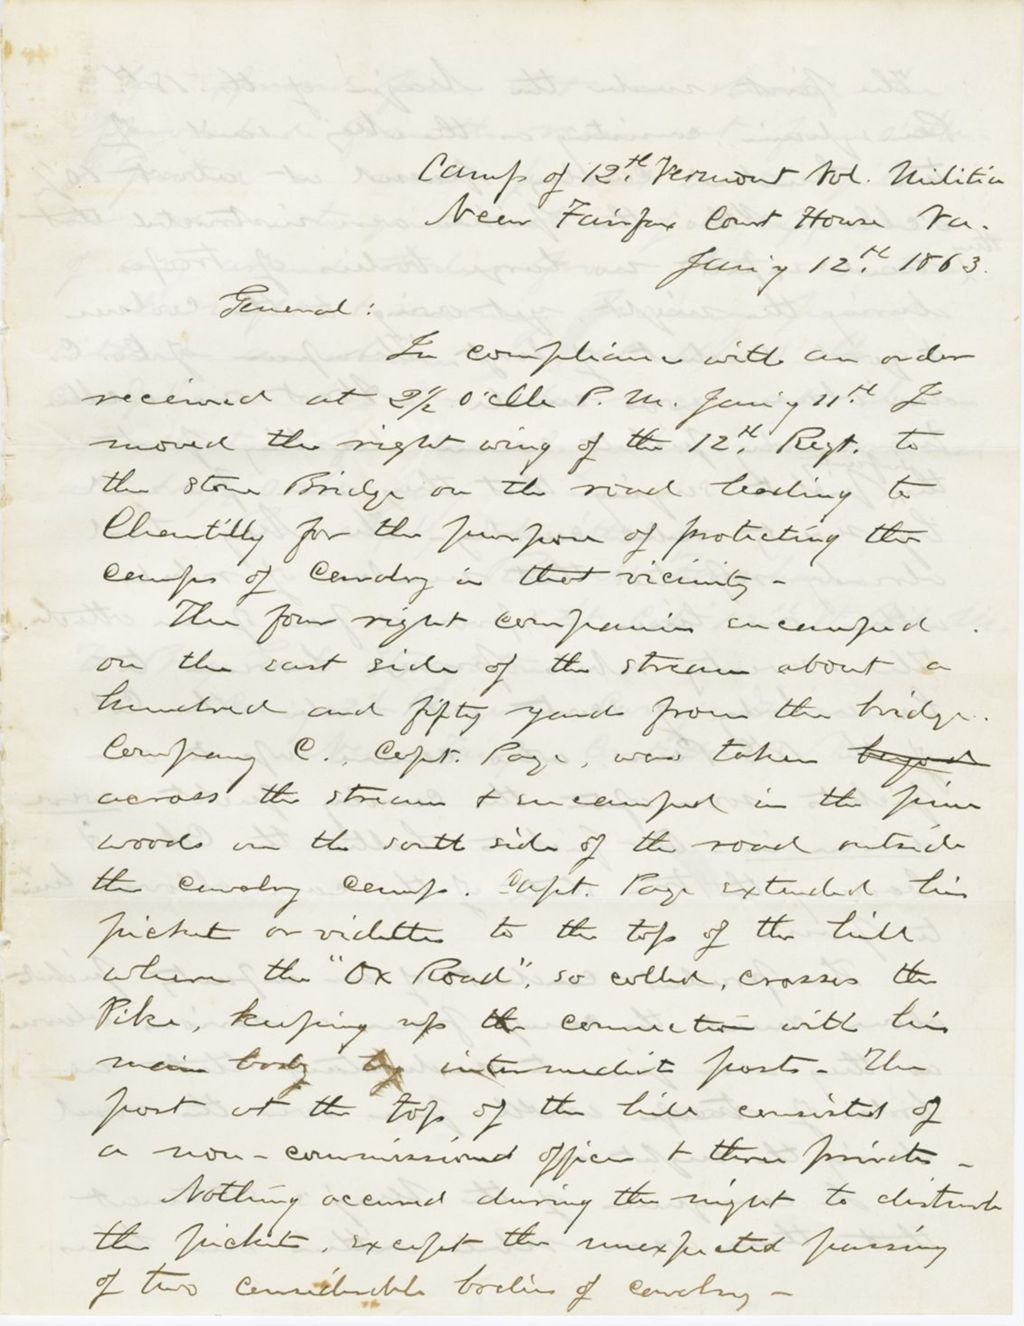 Camp of 12th Vermont Vol. Militia
Near Fairfax Court House Va.
Jan'y 12th 1863.
General:
In compliance with an order
received at 2½ O'clk P. M. Jan'y 11th I
moved the right wing of the 12th Regt. to
the Stone Bridge on the road leading to
Chantilly for the purpose of protecting the
camps of Cavalry in that vicinity -
The four right companies encamped
on the east side of the stream about a
hundred and fifty yards from the bridge.
Company C., Capt. Page, was taken beyond
across the stream & encamped in the pine
woods on the south side of the road outside
the cavalry camp. Capt. Page extended his
picket or videttes to the top of the hill
where the "Ox Road", so called, crosses the
Pike, keeping up the connection with his
main body by intermediate posts - The
post at the top of the hill consisted of
a non-commissioned officer & three privates -
Nothing occured during the night to disturb
the pickets, except the unexpected passing
of two considerable bodies of cavalry -